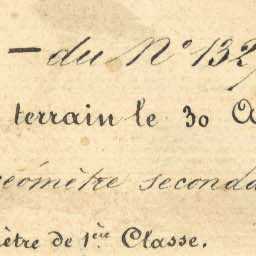 — du N° 132
terrain le 30 A
géomètre seconda
ètre de 1ère Classe.